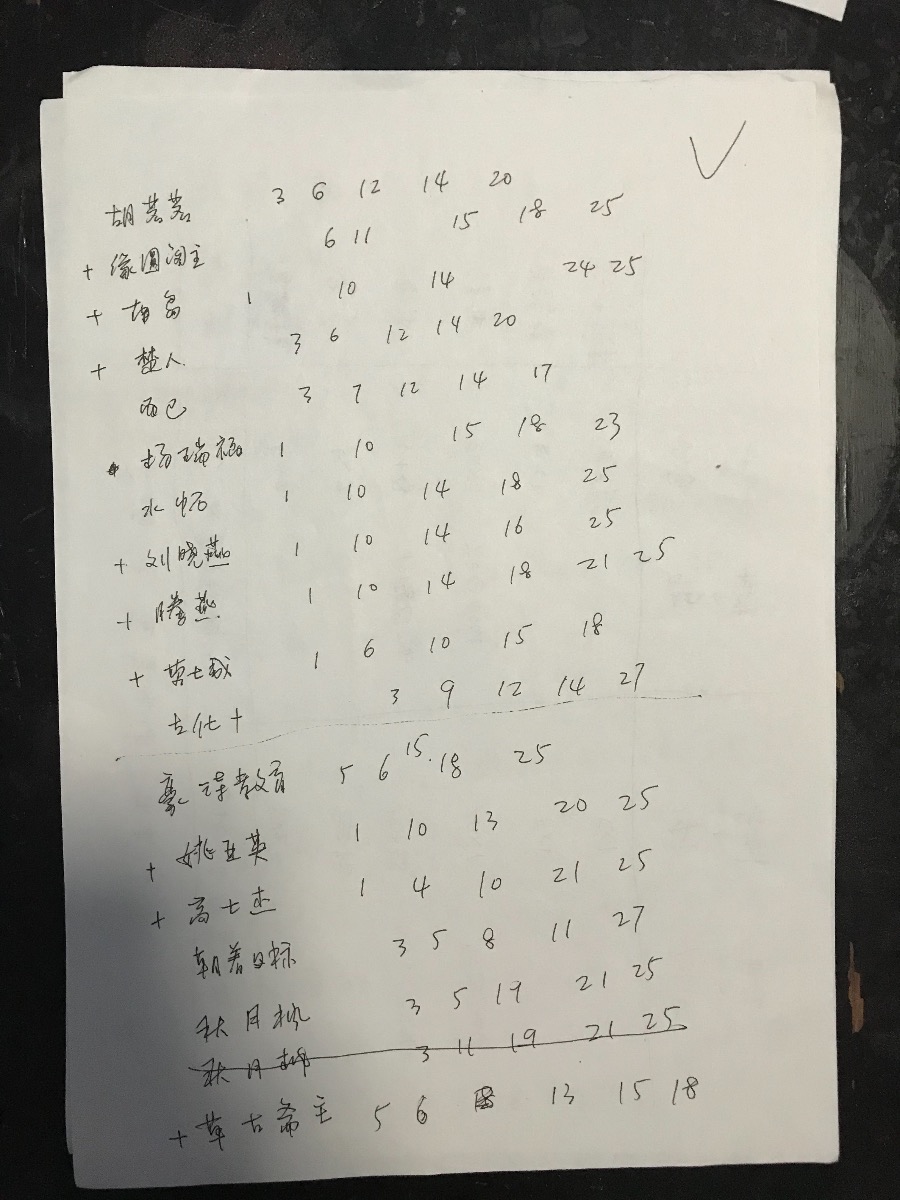 胡茗茗 3 6 12 14 20
+ 缘圆阁主 6 11 15 18 25
+ 胡岛 1 10 14 24 25
+ 楚人 3 6 12 14 20
而已 3 7 12 14 17
杨瑞福 1 10 15 18 23
水中石 1 10 14 18 25
+ 刘晓燕 1 10 14 16 25
+ 腾燕 1 10 14 18 21 25
+ 草七 1 6 10 15 18
古化十 3 9 12 14 27
教育 5 6 15.18 25
+ 姚亚英 1 10 13 20 25
+ 高士杰 1 4 10 21 25
朝着目标 3 5 8 11 27
秋月枫 3 5 19 21 25
秋月 3 11 19 21 25
+ 草古斋主 5 6 13 15 18